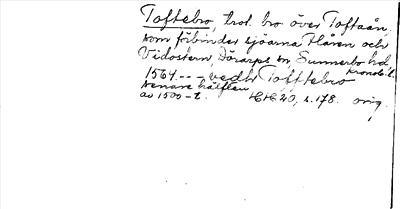 Toftebro, trol. bro över Toftaån,
som förbinder sjöarna Flåren och
Vidöstern, Dörarps sn, Sunnerbo hd
Kronob. l.
1564 --- vedh Tofftebro
senare hälften
av 1500-t. HH 20, s. 178. orig.